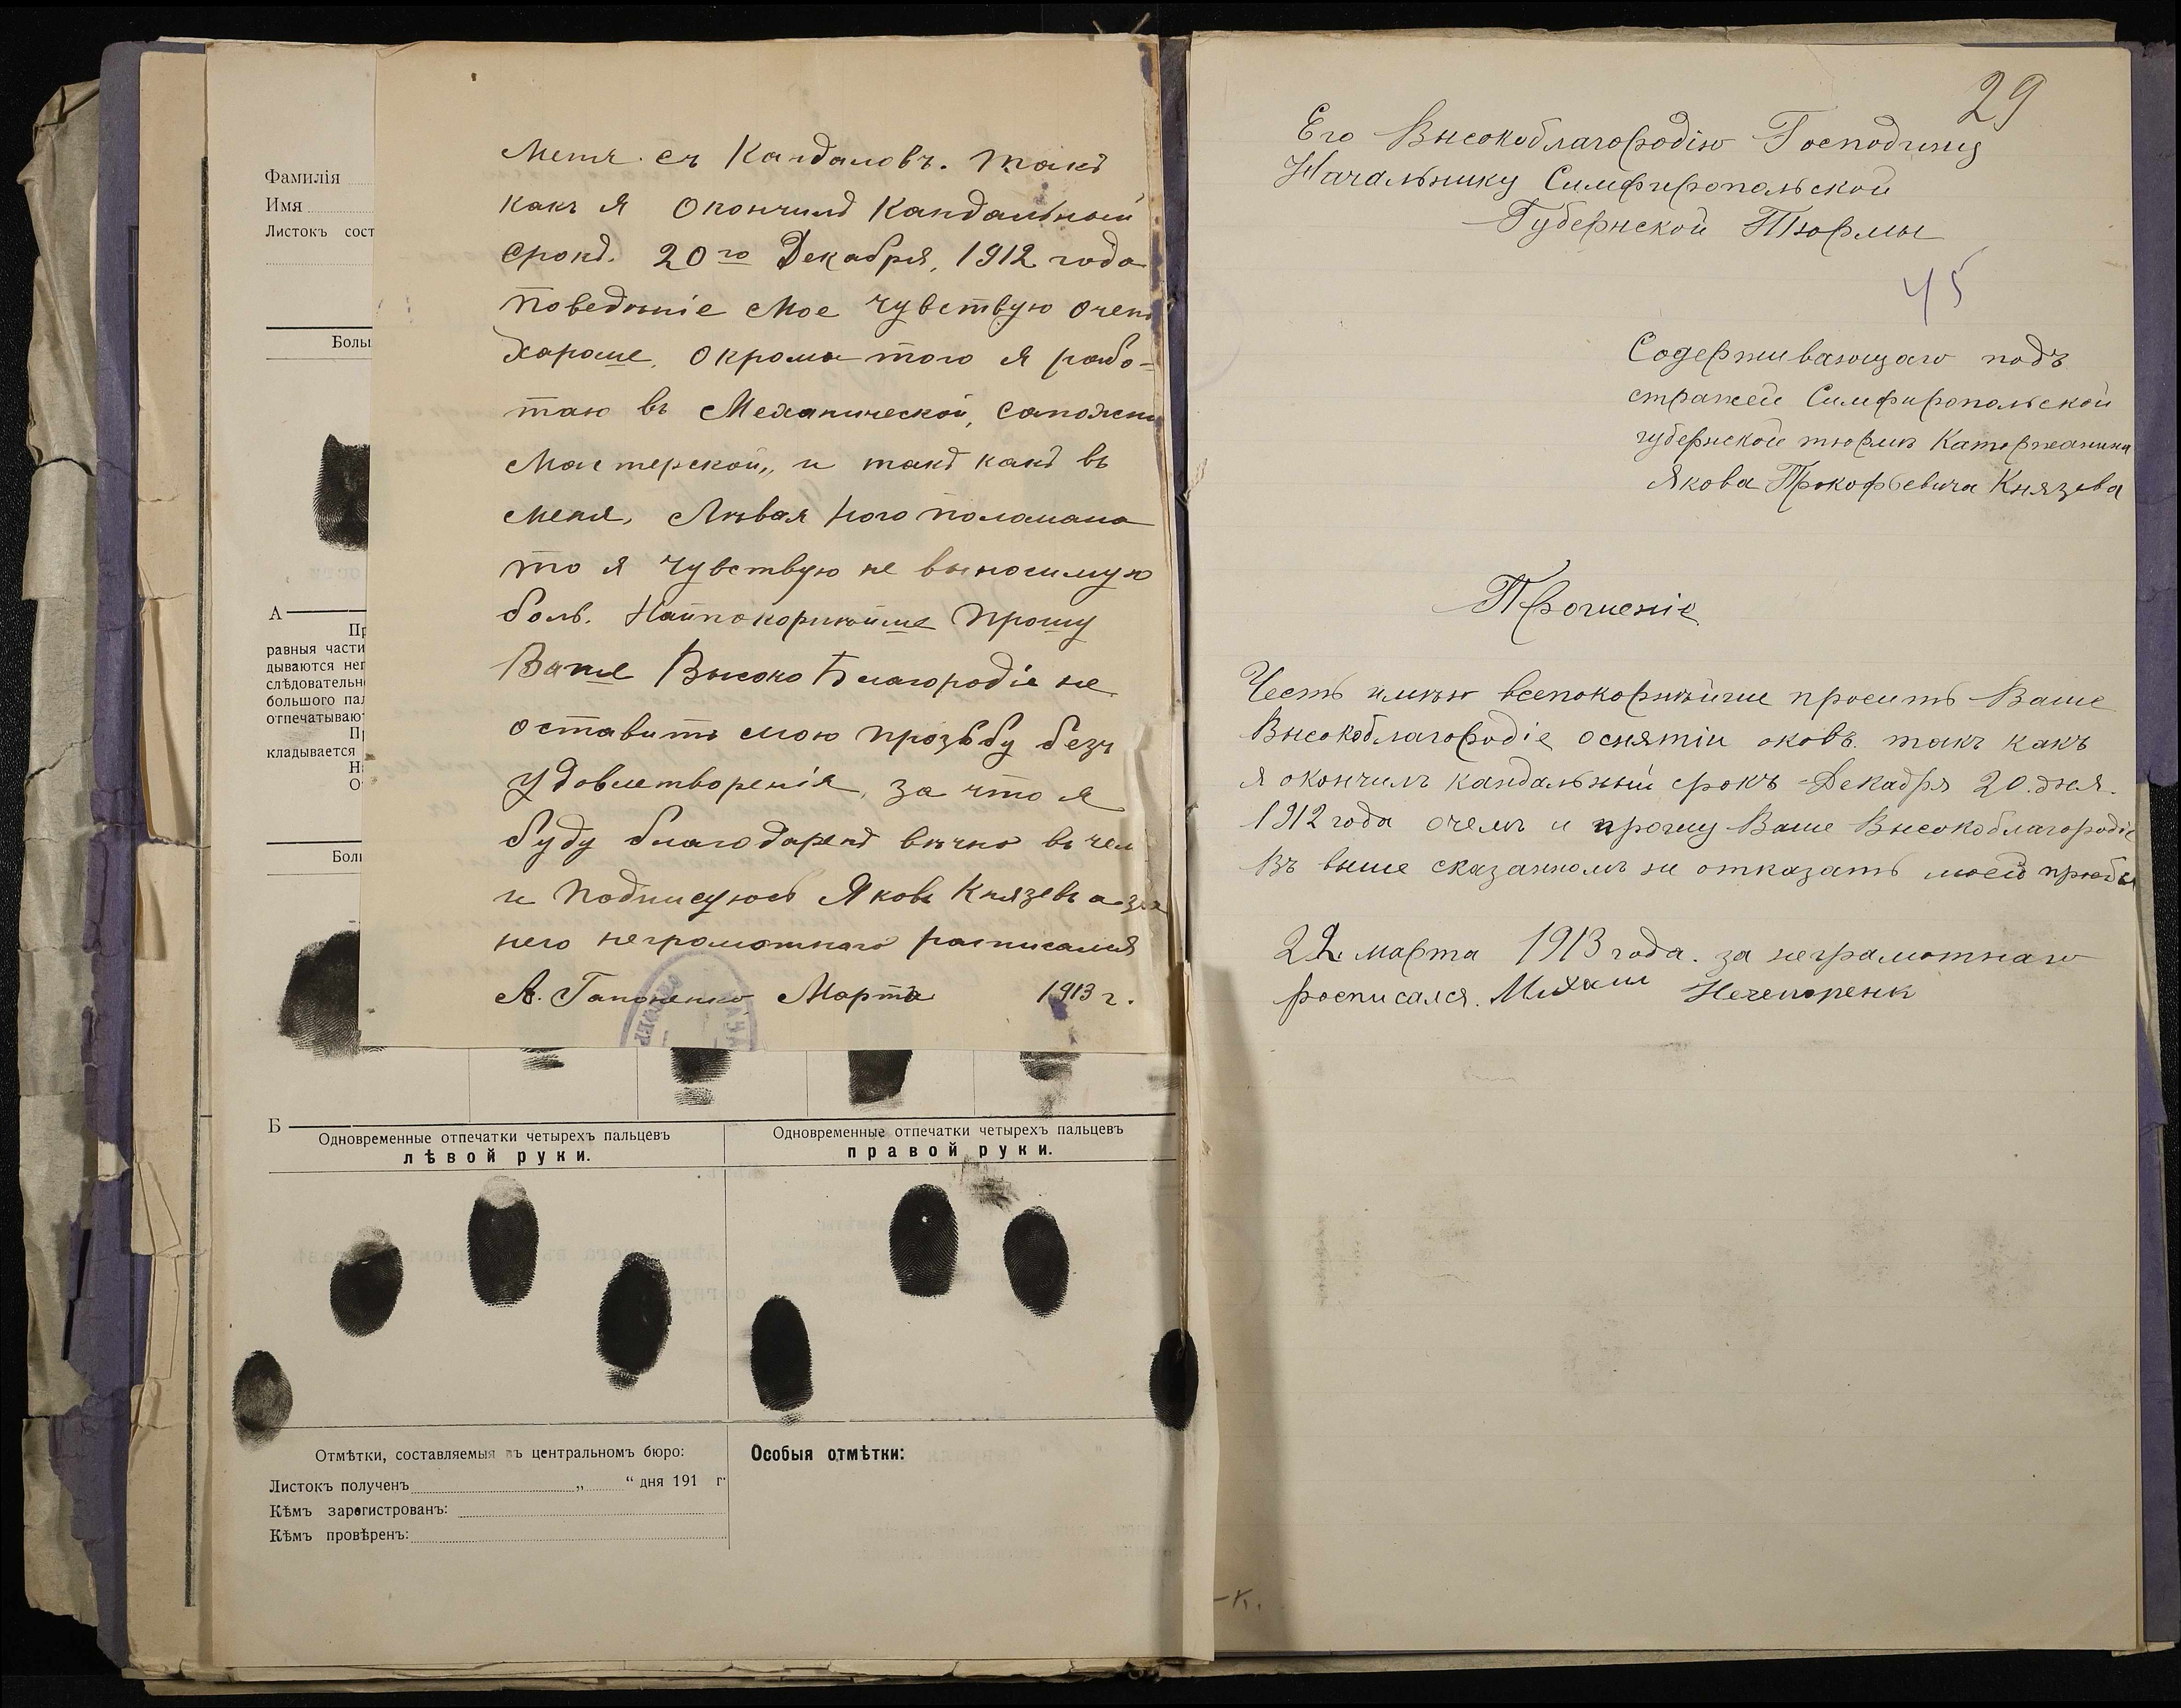 Фамилія
Имя
Листокъ сост
Больш
А
Пр
равныя части
дываются неп
слѣдовательн
большого пал
отпечатываю
Пр
кладывается
Боль
меня съ Кандаловъ. такъ
какъ я Окончилъ Кандальный
срокъ. 20го Декабря, 1912 года
поведѣніе мое чувствую очень
хароше, окрома того я рабо-
таю въ Механической, сапожни
мастерской,, и такъ какъ въ
меня, Лѣвая Нога поломана
то я чувствую не выносимую
боль. Найпокорнѣйше прошу
Ваше Высоко Благородіе не
оставить мою прозьбу безъ
удовлетворенія, за что я
буду благодаренъ вѣчно въ чем
и подписуюсь Яковъ Князевъ а за
него неграмотнаго расписался
А. Гапоненко Марта 1913 г.
Б
Одновременные отпечатки четырехъ пальцевъ
лѣвой руки.
Одновременные отпечатки четырехъ пальцевъ
правой руки.
Отмѣтки, составляемыя въ центральномъ бюро:
Листокъ полученъ „ “ дня 191 г.
Кѣмъ зарегистрованъ:
Кѣмъ провѣренъ:
Особыя отмѣтки:
29
Его Высокоблагородію Господину
Начальнику Симфиропольской
Губернской Тюрмы
45
Содерживающаго подъ
стражей Симфиропольской
губернской тюрмѣ Каторжанина
Якова Прокофьевича Князева
Прошеніе
Честь имѣю всепокорнѣйше просить Ваше
Высокоблагородіе оснятіи оковъ. такъ какъ
я окончилъ кандальный срокъ Декабря 20. дня.
1912 года очемъ и прошу Ваше Высокоблагородіе
Въ выше сказанномъ не отказать моей прозбы
22 марта 1913 года. за неграмотнаго
росписался. Михаил Нечепоренк
-к.